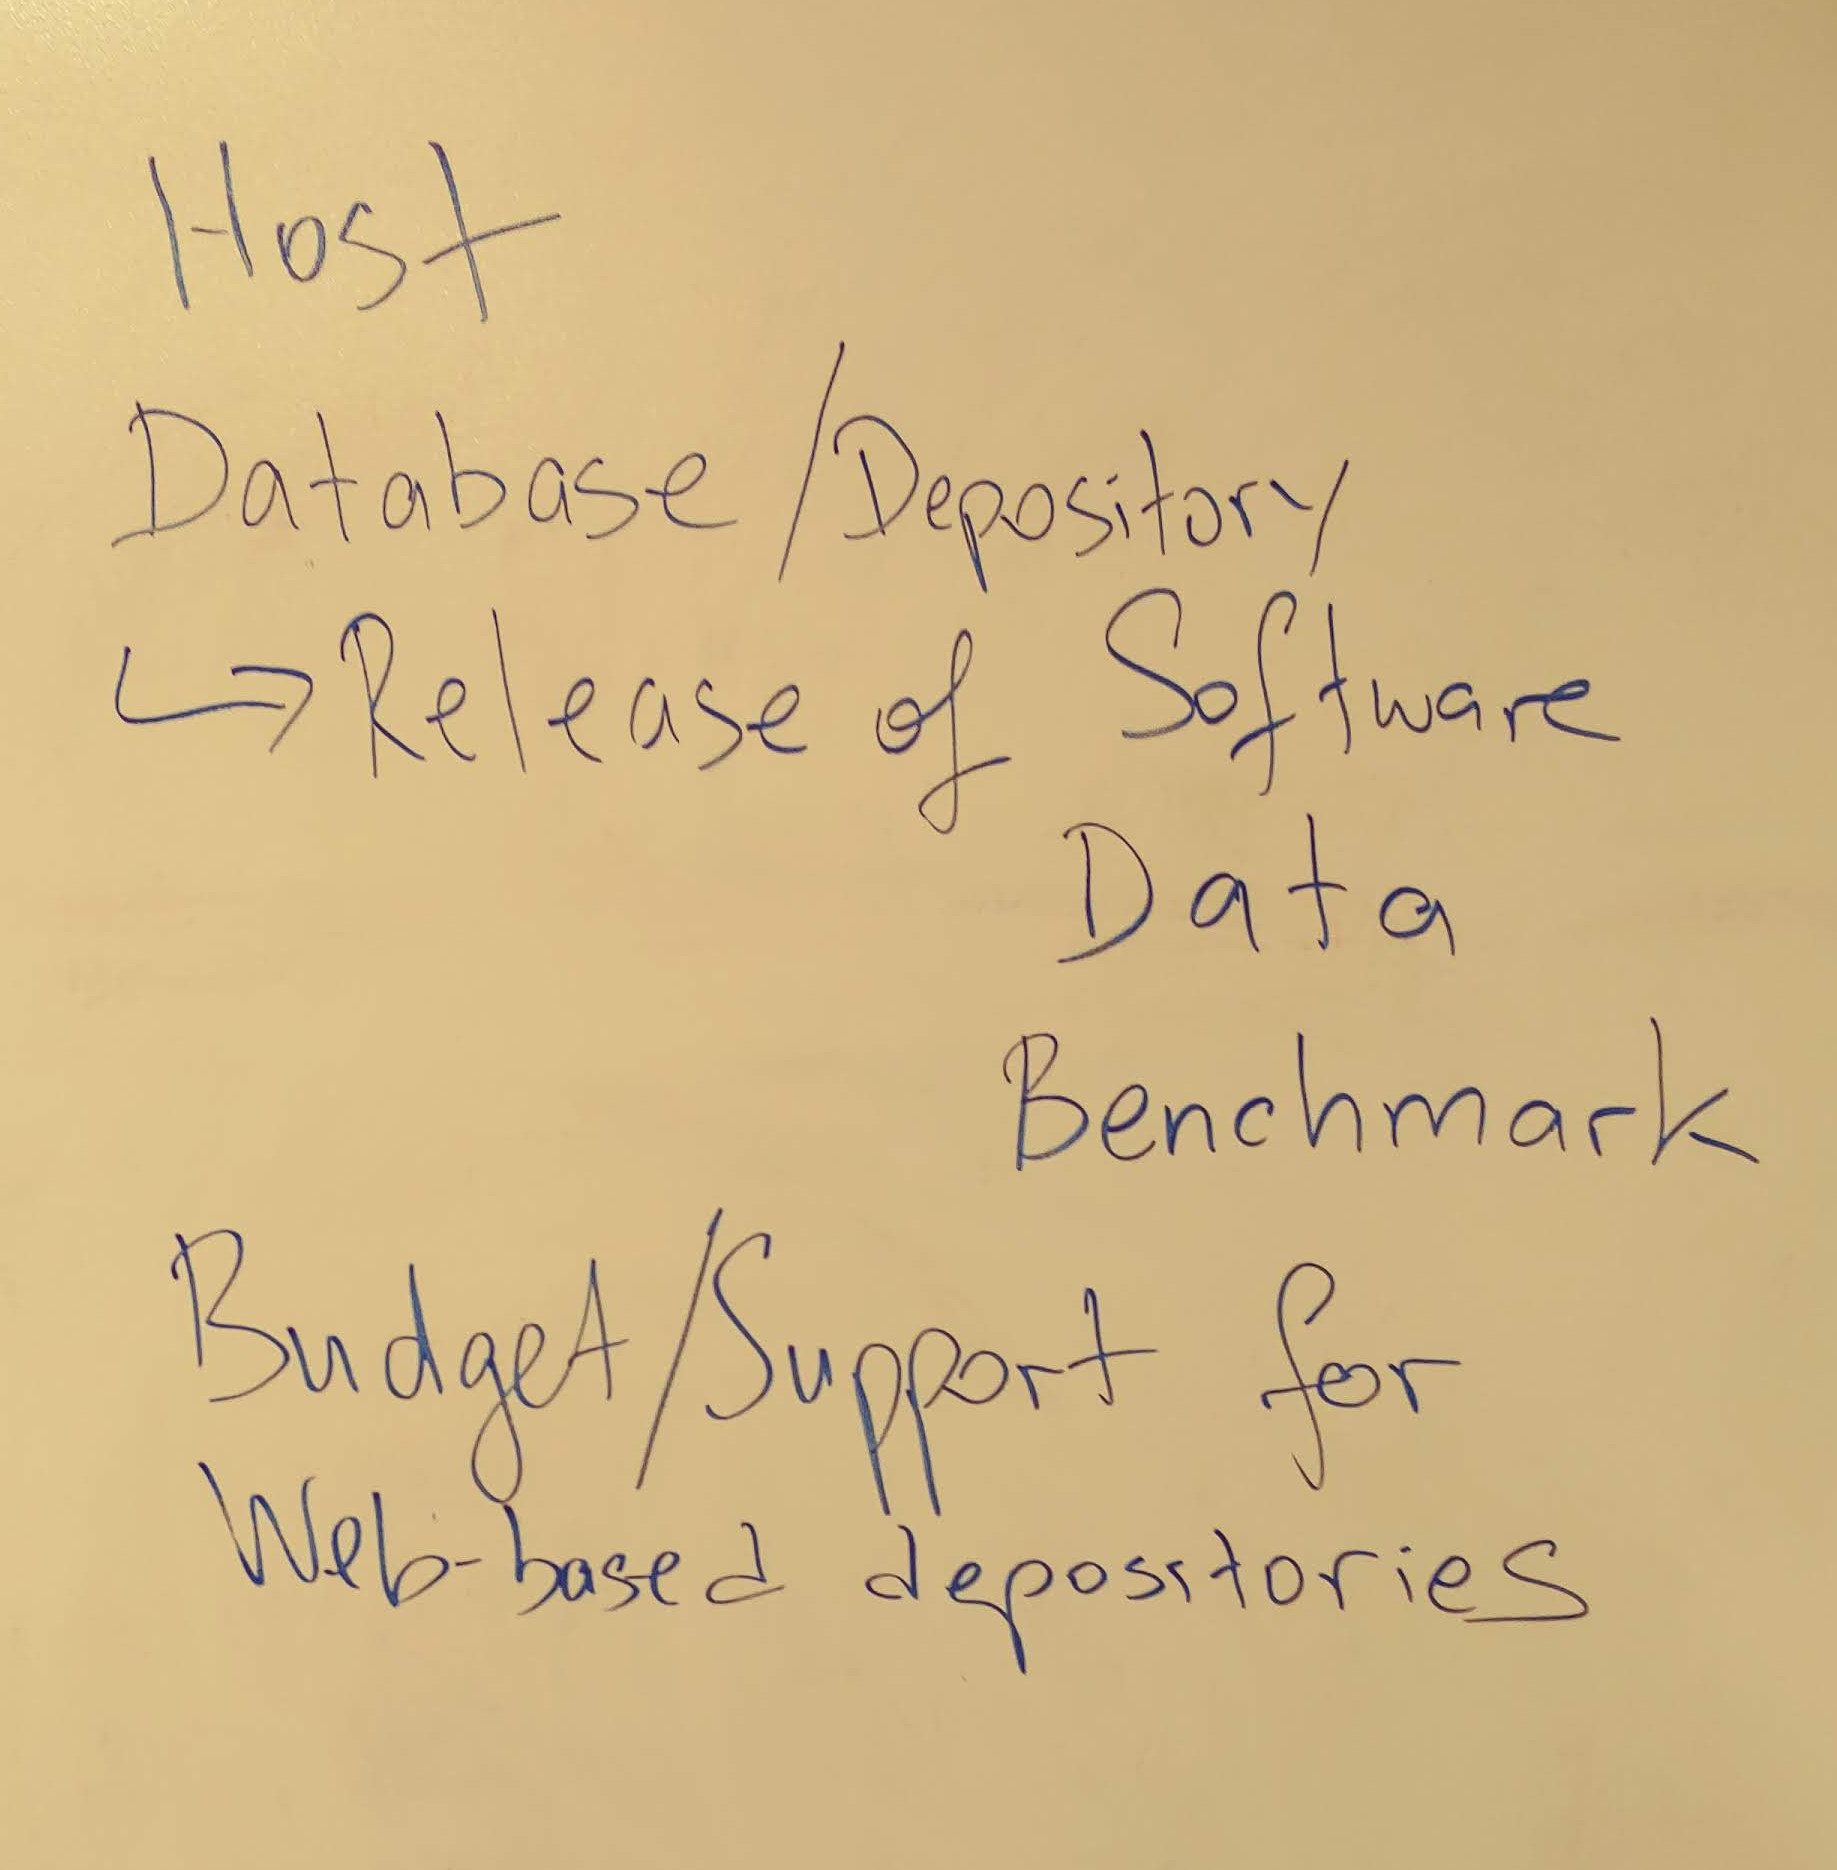 Host
Database/Depository
↳ Release of Software
Data
Benchmark
Budget/Support for
Web-based depositories